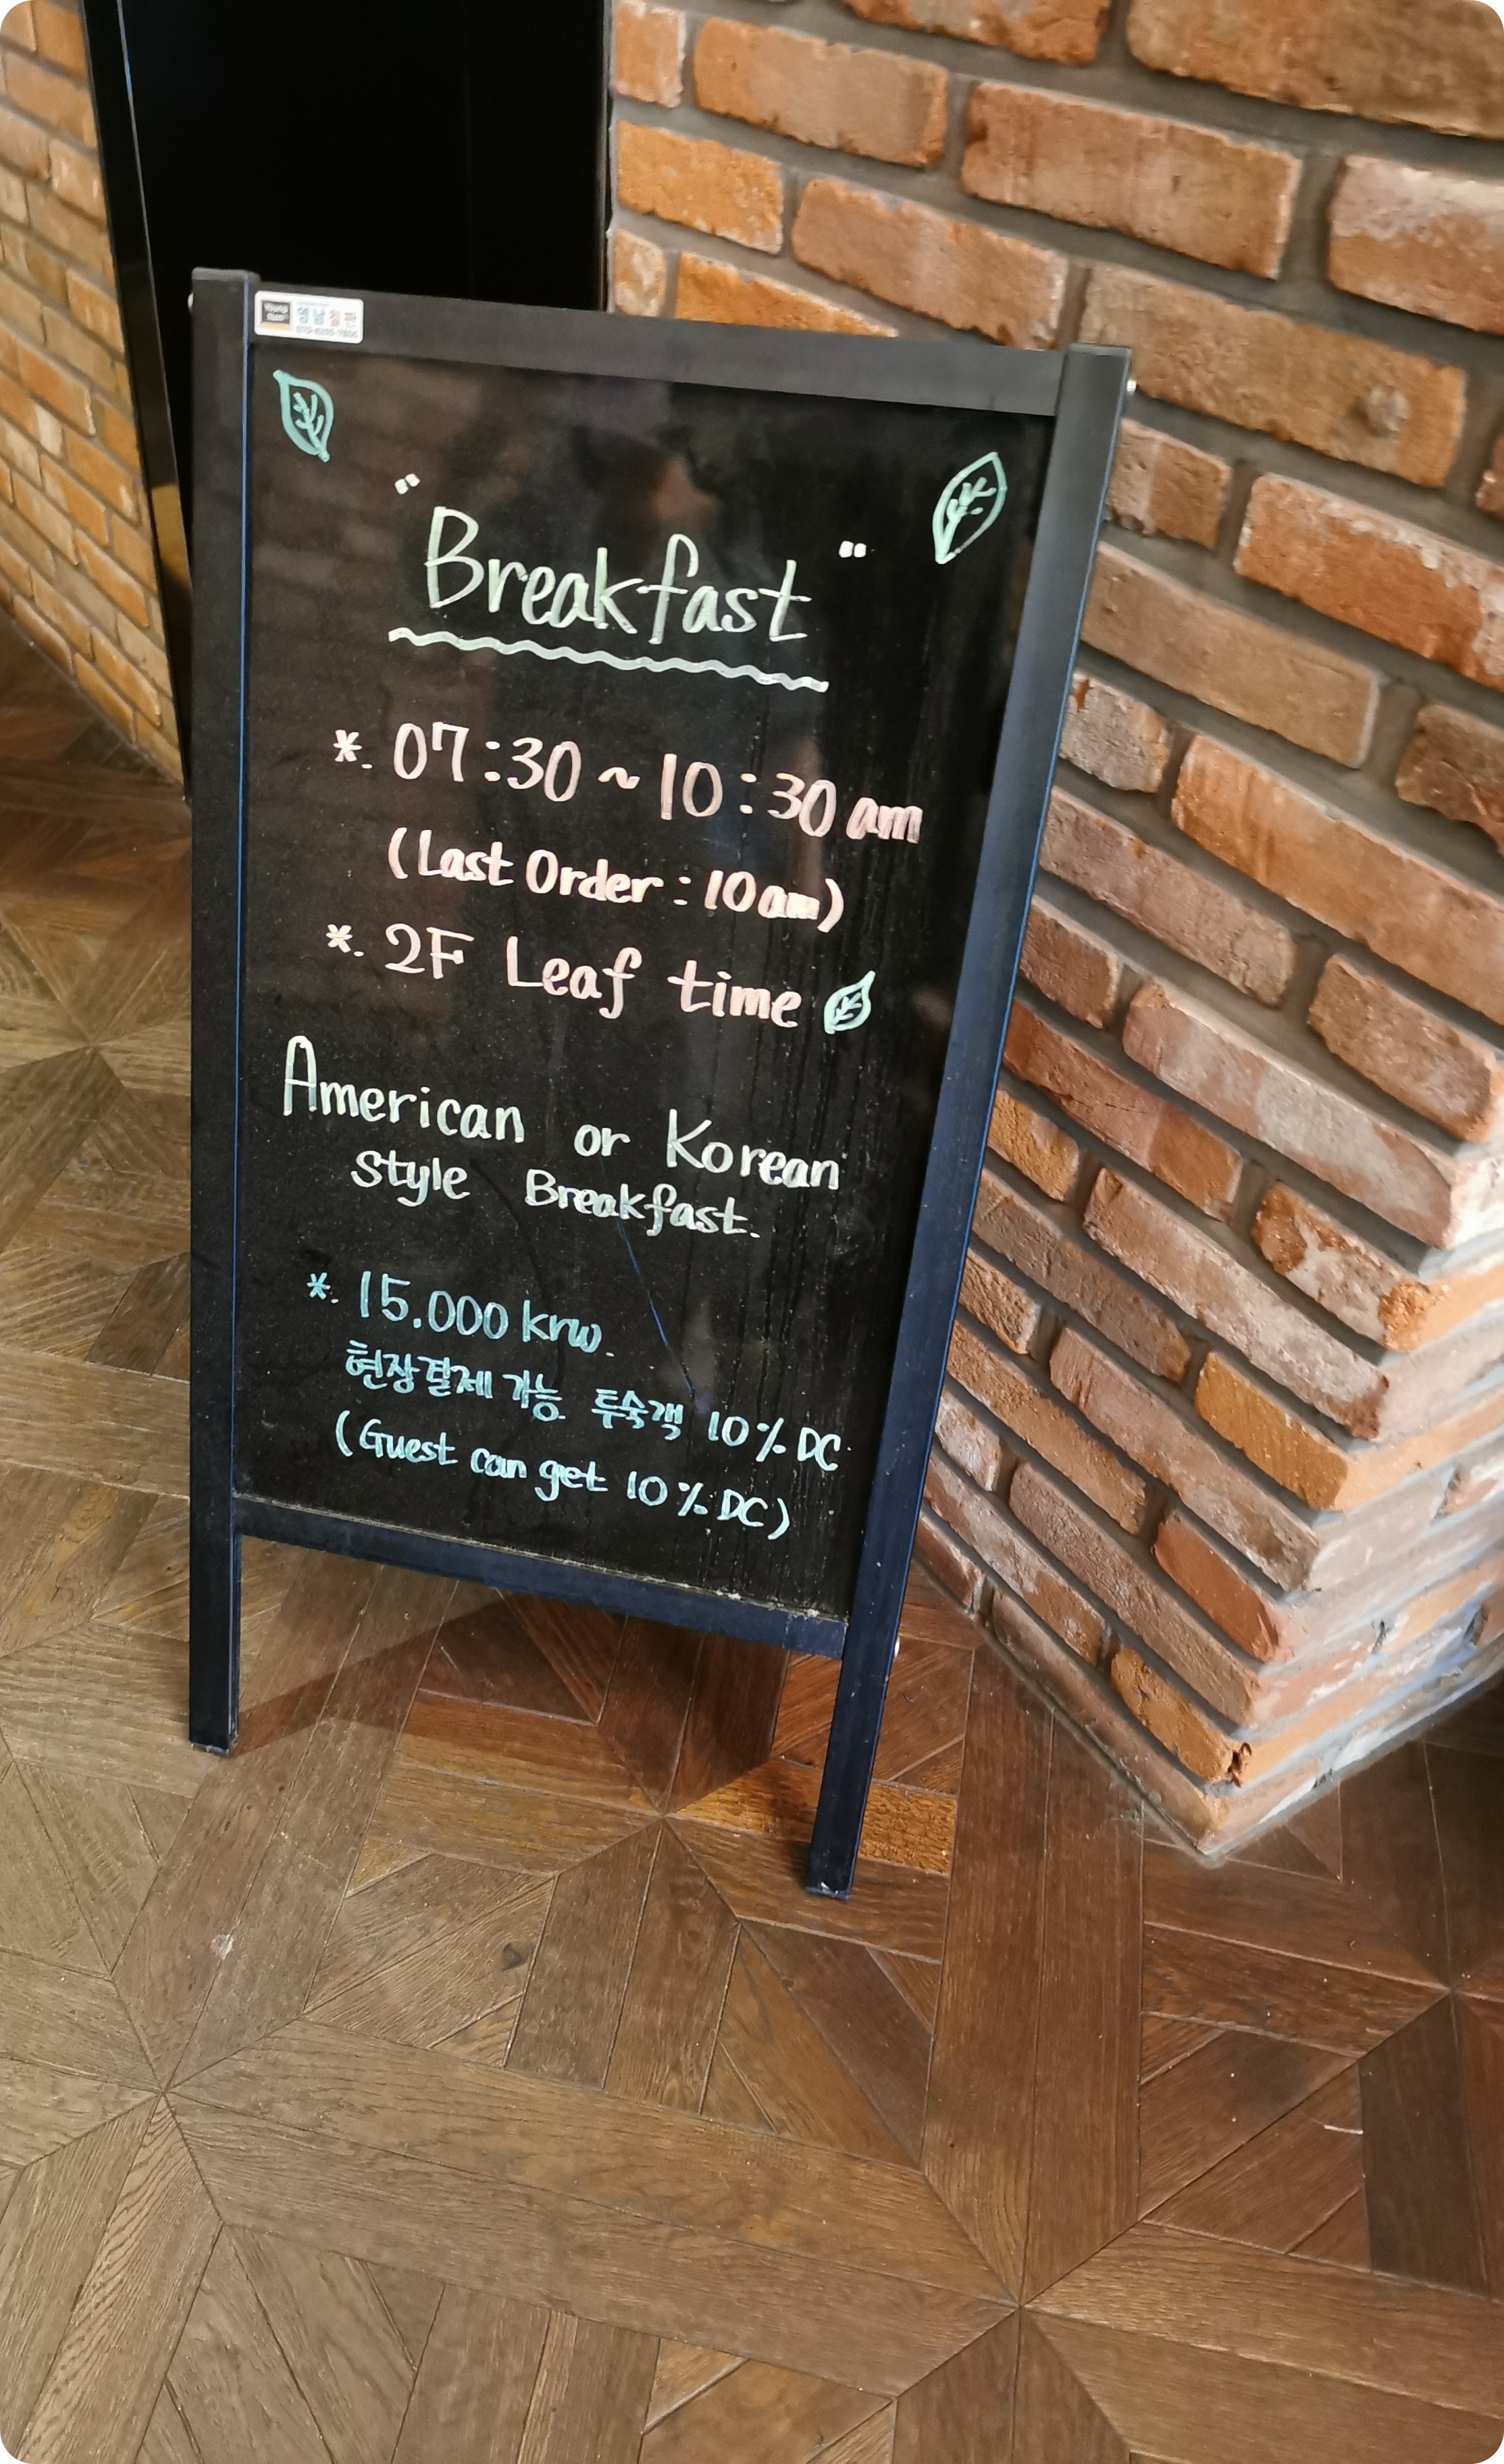 " Breakfast "
*. 07:30 ~ 10:30 am
(Last Order : 10am)
*. 2F Leaf time
American or Korean
Style Breakfast.
*. 15.000 krw.
현장결제 가능 투숙객 10% DC
(Guest can get 10% DC)